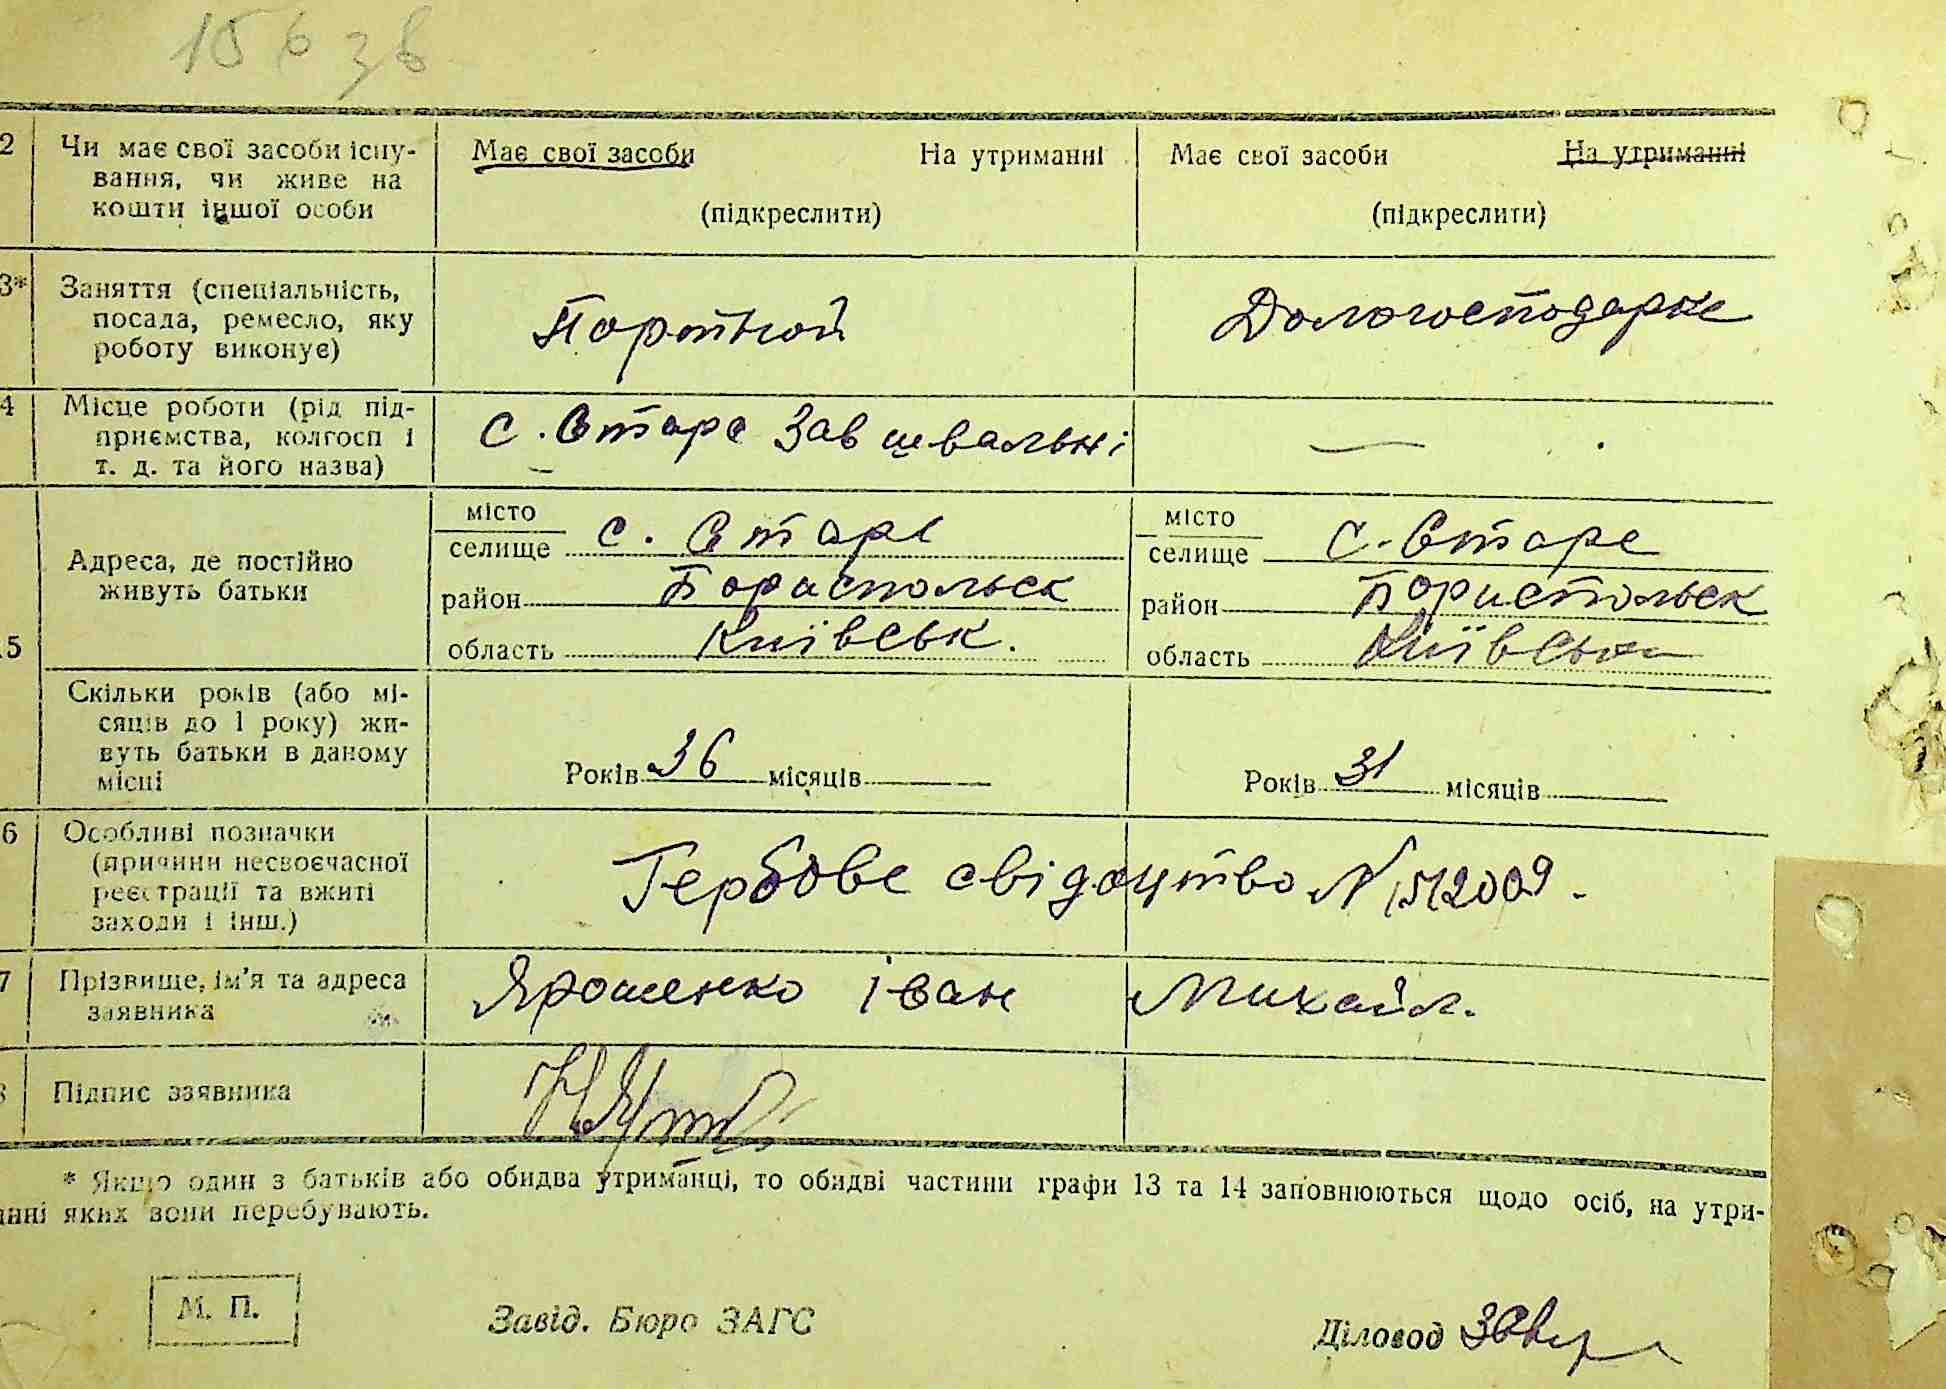 2 Чи має свої засоби існу- Має свої засоби На утриманні Має свої засоби На утриманні
вання, чи живе на
кошти іншої особи (підкреслити) (підкреслити)
3* Заняття (спеціальність,
посада, ремесло, яку Портной Домогосподарке
роботу виконує)
4 Місце роботи (рід під-
приємства, колгосп і с. Старе Зав швальні —
т. д. та його назва)
місто місто
селище с. Старе селище с. Старе
Адреса, де постійно
живуть батьки район Бориспольск район Бориспольск
15 область Київськ. область Київськ
Скільки років (або мі-
сяців до 1 року) жи-
вуть батьки в даному
місці Років 36 місяців — Років 31 місяців —
6 Особливі позначки
(причини несвоєчасної
реєстрації та вжиті Гербове свідоцтво N 1512009.
заходи і інш.)
7 Прізвище, ім'я та адреса Ярошенко Іван Михайл.
заявника
8 Підпис заявника
* Якщо один з батьків або обидва утриманці, то обидві частини графи 13 та 14 заповнюються щодо осіб, на утри-
манні яких вони перебувають.
М. П.
Завід. Бюро ЗАГС
Діловод